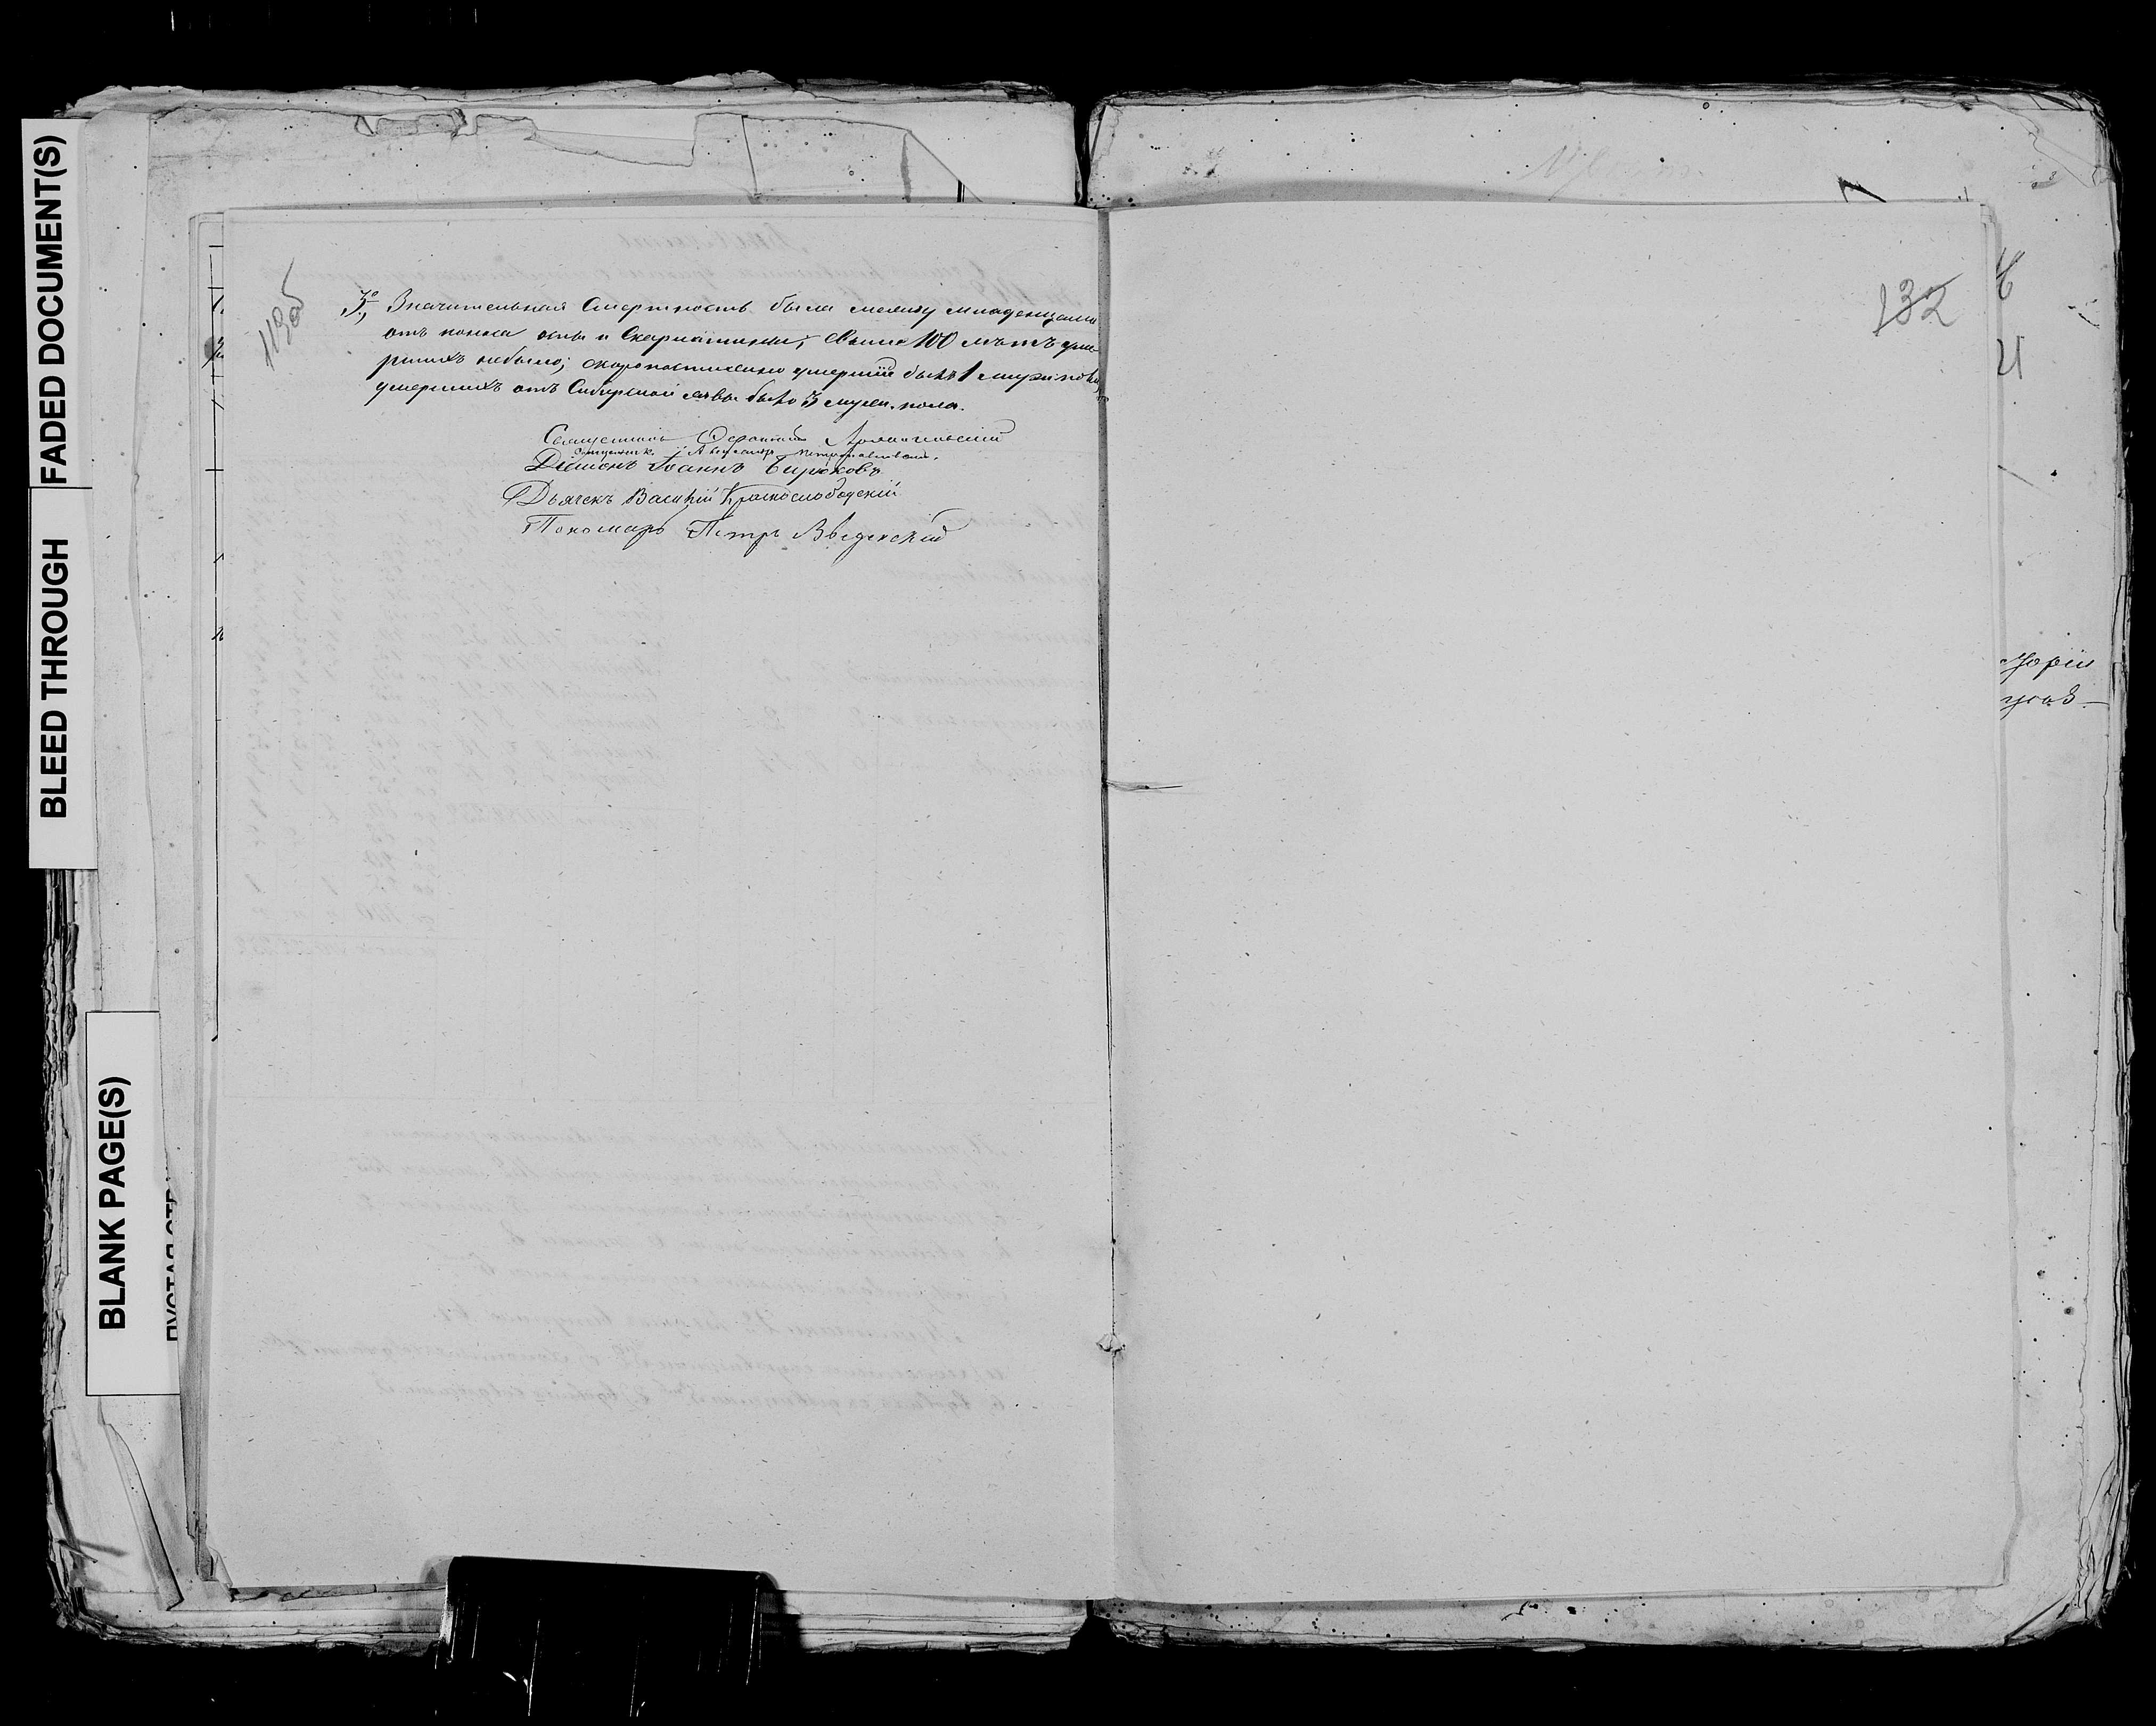 FADED DOCUMENT(S)
BLEED THROUGH
BLANK PAGE(S)
113об
3е, Значительная Смертность была между младенцами
отъ поноса оспы и Скарлатины; Свыше 100 лѣтъ уме-
ршихъ небыло; скоропостижно умершій былъ 1 муж. пола,
умершихъ отъ Сибирской язвы было 3 муж. пола.
Священникъ Архангельскій
Священникъ Александръ Петропавловскій.
Діаконъ Іоаннъ Бирюковъ
Дьячекъ Василій Краснослободскій
Пономарь Петръ Введенскій
132